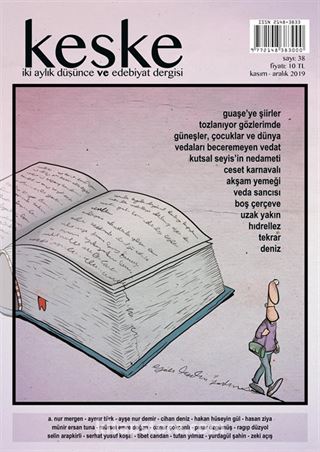 ISSN 2148-3833
9 772148 383000
keske
iki aylık düşünce ve edebiyat dergisi
sayı: 38
fiyatı: 10 TL
kasım - aralık 2019
guaşe'ye şiirler
tozlanıyor gözlerimde
güneşler, çocuklar ve dünya
vedaları beceremeyen vedat
kutsal seyis'in nedameti
ceset karnavalı
akşam yemeği
veda sancısı
boş çerçeve
uzak yakın
hıdrellez
tekrar
deniz
a. nur mergen - aynur türk - ayşe nur demir - cihan deniz - hakan hüseyin gül - hasan ziya
münir ersan tuna - mürsel emre doğan - pınar özgümüş - ragıp düzyol
selin arapkirli - serhat yusuf koşa - tibet candan - tufan yılmaz - yurdagül şahin - zeki açış